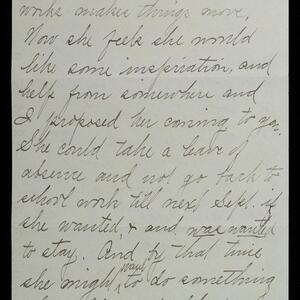 works makes things move.
Now she feels she would
like some inspiration, and
help from somewhere and
I proposed her coming to you.
She could take a leave of
absence and not go back to
school work till next Sept. if
she wanted, & and was wanted
to stay. And by that time
she might want to do something